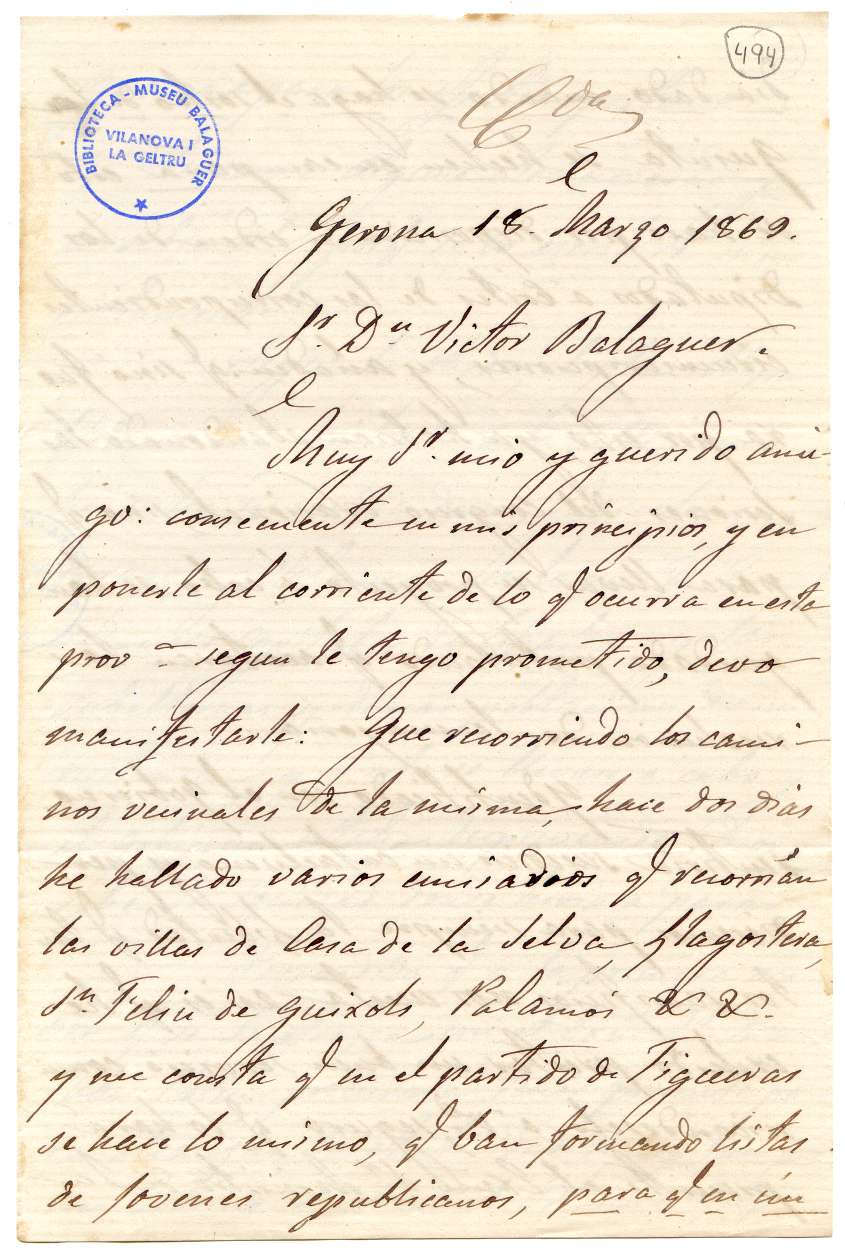 494
BIBLIOTECA - MUSEU BALAGUER
VILANOVA I
LA GELTRU
Cda
Gerona 18. Marzo 1869.
Sr. Dn Victor Balaguer.
Muy Sr. mio y querido ami-
go: consecuente en mis principios, y en
ponerle al corriente de lo q. ocurra en esta
prov.a segun le tengo prometido, devo
manifestarle: Que recorriendo los cami-
nos vecinales de la misma, hace dos dias
he hallado varios emisarios q. recorrian
las villas de Casa de la Selva, Llagostera,
Sn Feliu de Guixols, Palamós & &.
y me consta q. en el partido de Figueras
se hace lo mismo, q. ban formando listas
de jovenes republicanos, para q. en un